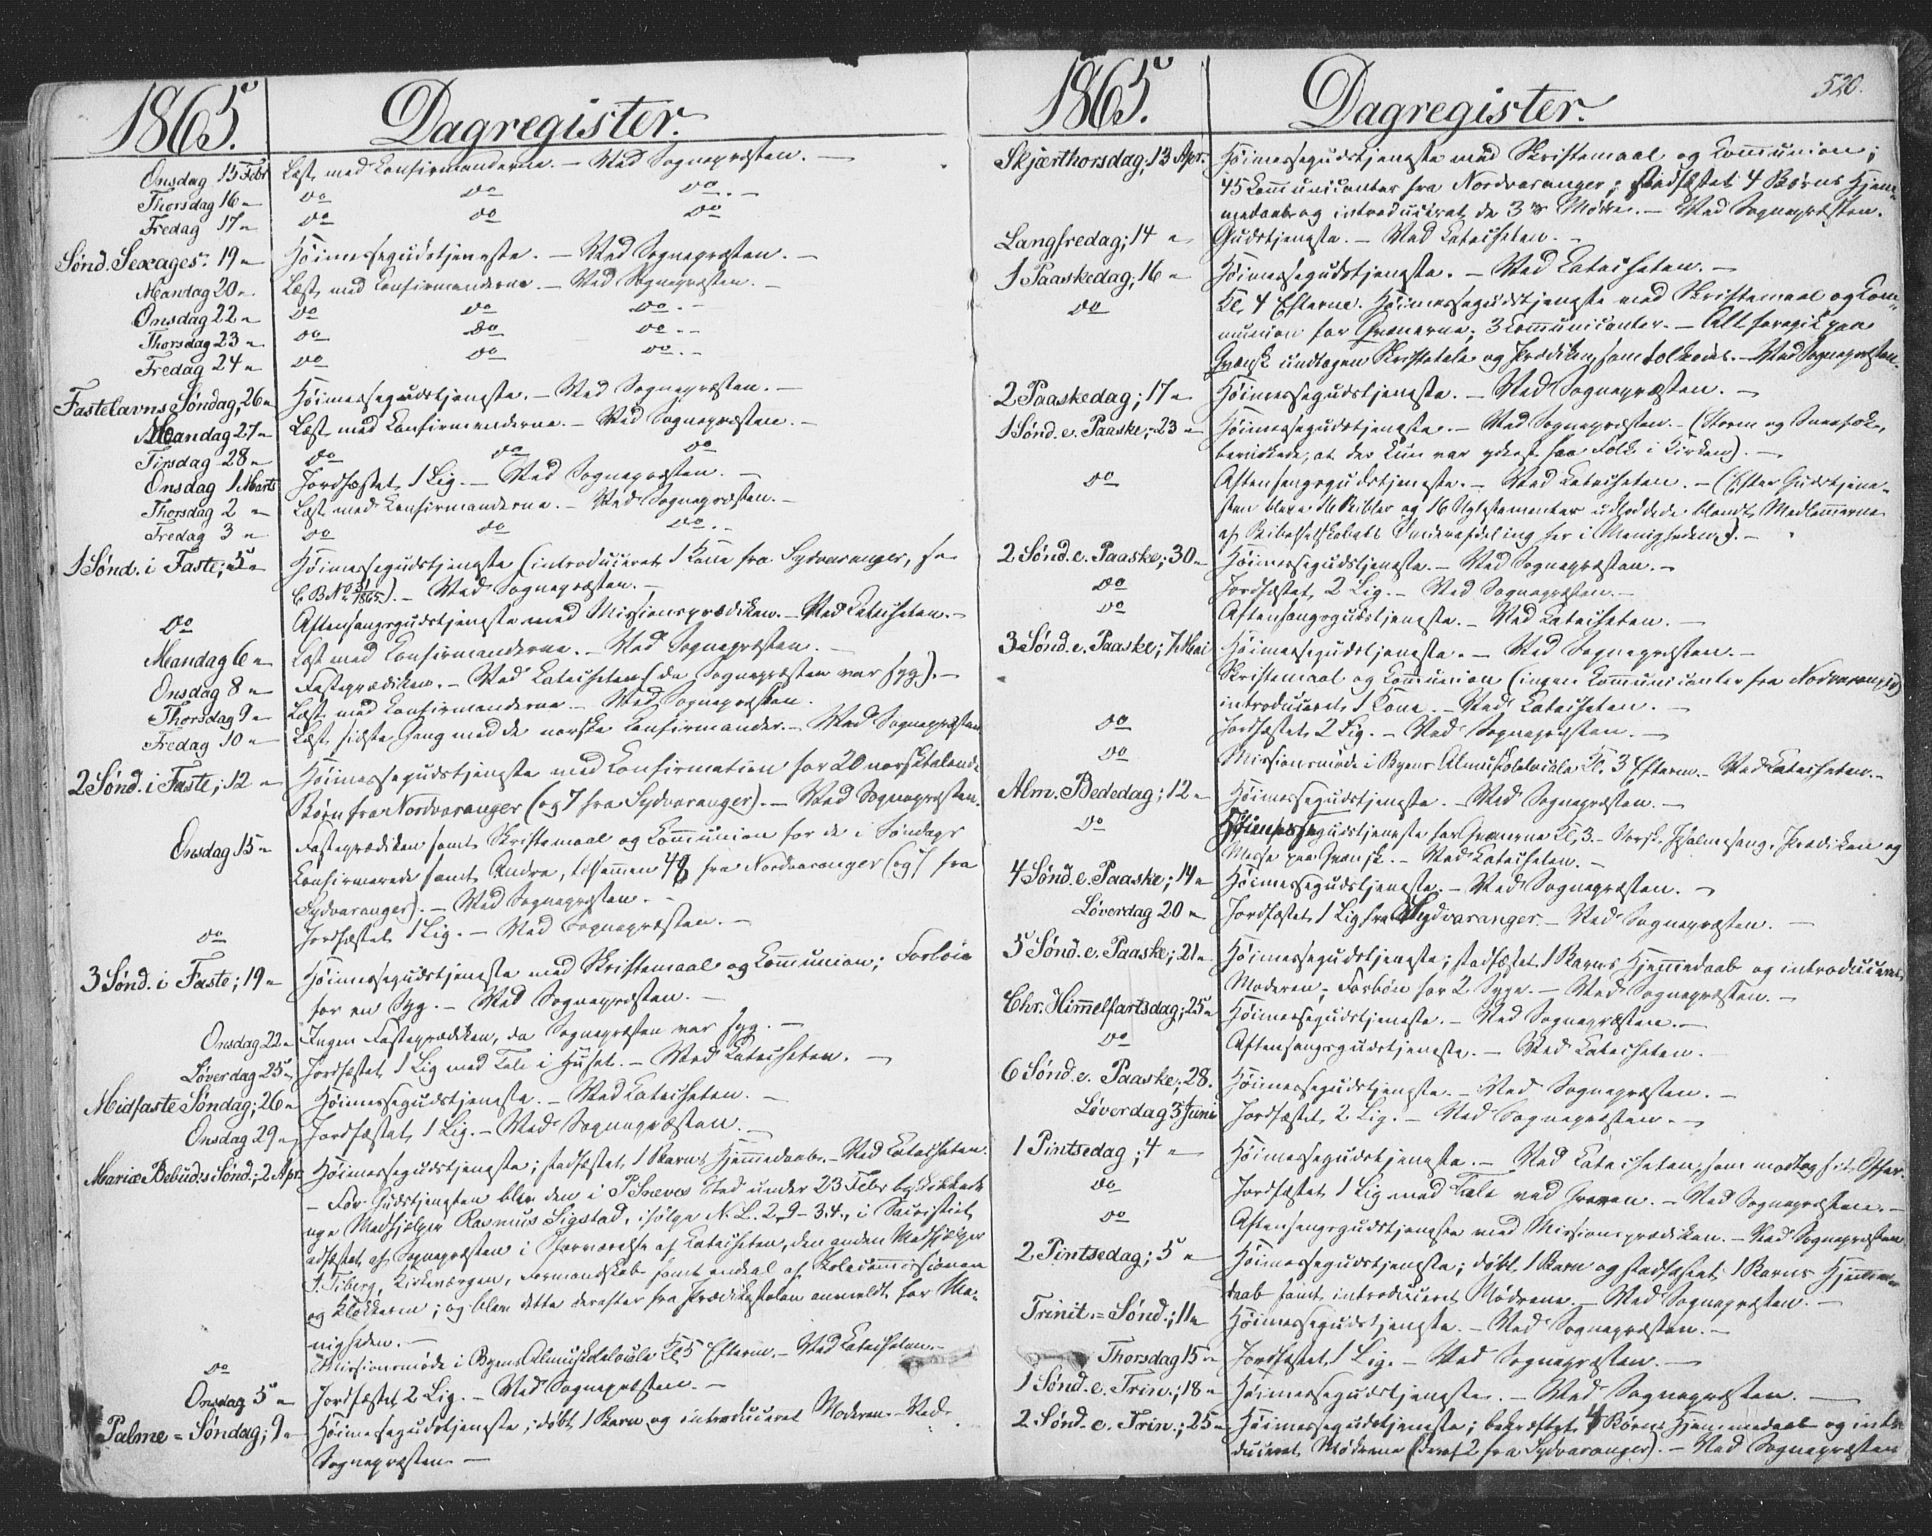 1865. Dagregister.
Onsdag 15 Febr Læst med Konfirmanderne. — Ved Sognepræsten. —
Thorsdag 16 " do do do. —
Fredag 17 " do do do
Sønd. Sexages: 19 " Høimessegudstjeneste. — Ved Sognepræsten. —
Mandag 20 " Læst med Konfirmanderne. — Ved Sognepræsten. —
Onsdag 22 " do do do. —
Thorsdag 23 " do do do. -
Fredag 24 " do do do. -
Fastelavns Søndag, 26 " Høimessegudstjeneste. — Ved Sognepræsten. —
Mandag 27 " Læst med Konfirmanderne. — Ved Sognepræsten. —
Tirsdag 28 " do do do
Onsdag 1 Marts Jordfæstet 1 Lig. — Ved Sognepræsten. —
Thorsdag 2 " Læst med Konfirmanderne. — Ved Sognepræsten. —
Fredag 3 " do do do. -
1 Sønd. i Faste; 5 " Høimessegudstjeneste (introduceret 1 Kone fra Sydvaranger, se
C. B. No 31/1865). — Ved Sognepræsten. —
do Aftensangsgudstjeneste med Missionsprædiken. — Ved Katecheten. —
Mandag 6 " Læst med Konfirmanderne. — Ved Sognepræsten. —
Onsdag 8 " Fasteprædiken. — Ved Katecheten (da Sognepræsten var syg). —
Thorsdag 9 " Læst med Konfirmanderne. — Ved Sognepræsten.
Fredag 10 " Læst sidste Gang med de norske Konfirmander. — Ved Sognepræsten
2 Sønd. i Faste; 12 " Høimessegudstjeneste med Konfirmation for 20 norsktalende
Børn fra Nordvaranger (og 7 fra Sydvaranger). — Ved Sognepræsten.
Onsdag 15 " Fasteprædiken samt Skriftemaal og Kommunion for de i Søndags
Konfirmerede samt Andre, tilsammen 48 fra Nordvaranger (og 7 fra
Sydvaranger). — Ved Sognepræsten. —
do Jordfæstet 1 Lig. — Ved Sognepræsten. —
3 Sønd. i Faste; 19 " Høimessegudstjeneste med Skriftemaal og Kommunion; Forbøn
for en Syg. — Ved Sognepræsten. —
Onsdag 22 " Ingen Fasteprædiken, da Sognepræsten var syg. —
Løverdag 25 " Jordfæstet 1 Lig med Tale i Huset. — Ved Katecheten. —
Midfaste Søndag; 26 " Høimessegudstjeneste. — Ved Katecheten. —
Onsdag 29 " Jordfæstet 1 Lig. — Ved Sognepræsten. —
Mariæ Bebud:s Sønd.; 2 Apr. Høimessegudstjeneste; stadfæstet 1 Barns Hjemmedaab. — Ved Katecheten.
— Før Gudstjenesten blev den i P. Sneves Sted under 23 Febr beskikkede
nye Medhjelper Rasmus Sigstad, ifølge N. L. 2-9-3.4., i Sacristiet
edfæstet af Sognepræsten i Overværelse af Katecheten, den anden Medhjelper
J. Tiberg, Kirkeværgen, Formandskabet samt endeel af Skolecommissionen
og Klokkeren; og blev dette derefter fra Prædikestolen anmeldt for Me-
nigheden. —
do Missionsmøde i Byens Almueskolelocale Kl 5 Efterm. — Ved Katecheten. —
Onsdag 5 " Jordfæstet 2 Lig. — Ved Sognepræsten. —
Palme = Søndag; 9 " Høimessegudstjeneste; døbt 1 Barn og introduceret Moderen — Ved
Sognepræsten —
1865. Dagregister. 520.
Skjærthorsdag, 13 Apr. Høimessegudstjeneste med Skriftemaal og Kommunion;
45 Kommunicanter fra Nordvaranger; stadfæstet 4 Børns Hjem-
medaab og introduceret de 3's Mødre. — Ved Sognepræsten.
Langfredag; 14 " Gudstjeneste. — Ved Katecheten. —
1 Paaskedag, 16 " Høimessegudstjeneste. — Ved Katecheten. —
do Kl. 4 Efterm. Høimessegudstjeneste med Skriftemaal og Kom-
munion for Qvænerne; 3 Kommunicanter. — Alt foregik paa
Qvænsk undtagen Skriftetale og Prædiken, som tolkedes. — Ved Sognepræsten.
2 Paaskedag; 17 " Høimessegudstjeneste. — Ved Sognepræsten. —
1 Sønd. e. Paaske; 23 " Høimessegudstjeneste. — Ved Sognepræsten. — (Storm og Sneefok,
bevirkede, at der kun var yderst faa Folk i Kirken). —
do Aftensangsgudstjeneste. — Ved Katecheten. — (Efter Gudstjene-
sten bleve 16 Bibler og 16 Nytestamenter udloddede blandt Medlemmerne
af Bibelselskabets Underafdeling her i Menigheden). —
2 Sønd. e. Paaske; 30 " Høimessegudstjeneste. — Ved Sognepræsten. —
do Jordfæstet 2 Lig. — Ved Sognepræsten. —
do Aftensangsgudstjeneste. — Ved Katecheten. —
3 Sønd. e. Paaske; 7 Mai Høimessegudstjeneste. — Ved Sognepræsten. —
Skriftemaal og Kommunion (ingen Kommunicanter fra Nordvaranger)
introduceret 1 Kone. — Ved Katecheten. —
do Jordfæstet 2 Lig. — Ved Sognepræsten. —
do Missionsmøde i Byens Almueskolelocale Kl. 3 Efterm. — Ved Katecheten. —
Alm. Bededag; 12 " Høimessegudstjeneste. — Ved Sognepræsten. —
do Høimessegudstjeneste for Qvænerne Kl. 3. — Norsk Psalmesang. Prædiken og
Messe paa Qvænsk. — Ved Katecheten. —
4 Sønd. e. Paaske; 14 " Høimessegudstjeneste. — Ved Sognepræsten. —
Løverdag 20 " Jordfæstet 1 Lig fra Sydvaranger. — Ved Sognepræsten. —
5 Sønd. e. Paaske; 21 " Høimessegudstjeneste; stadfæstet 1 Barns Hjemmedaab og introduceret
Moderen; Forbøn for 2 Syge. — Ved Sognepræsten. —
Chr. Himmelfartsdag; 25 " Høimessegudstjeneste. — Ved Sognepræsten. —
do Aftensangsgudstjeneste. — Ved Katecheten. —
6 Sønd. e. Paaske; 28. Høimessegudstjeneste. — Ved Sognepræsten. —
Løverdag 3 Juni Jordfæstet 2 Lig. — Ved Sognepræsten. —
1 Pintsedag; 4 " Høimessegudstjeneste. — Ved Katecheten, som modtog sit Offer.
do Jordfæstet 1 Lig med Tale ved Graven. — Ved Sognepræsten. —
do Aftensangsgudstjeneste med Missionsprædiken. — Ved Sognepræsten
2 Pintsedag; 5 " Høimessegudstjeneste; døbt 1 Barn og stadfæstet 1 Barns Hjemme-
daab samt introduceret Mødrene. — Ved Sognepræsten. —
Trinit. = Sønd.; 11 " Høimessegudstjeneste. — Ved Sognepræsten. —
Thorsdag 15 " Jordfæstet 1 Lig. — Ved Sognepræsten. —
1 Sønd. e. Trin.; 18 " Høimessegudstjeneste. — Ved Sognepræsten. —
2 Sønd. e. Trin.; 25 " Høimessegudstjeneste; bekræftet 4 Børns Hjemmedaab og intro-
duceret Mødrene (deraf 2 fra Sydvaranger). — Ved Sognepræsten